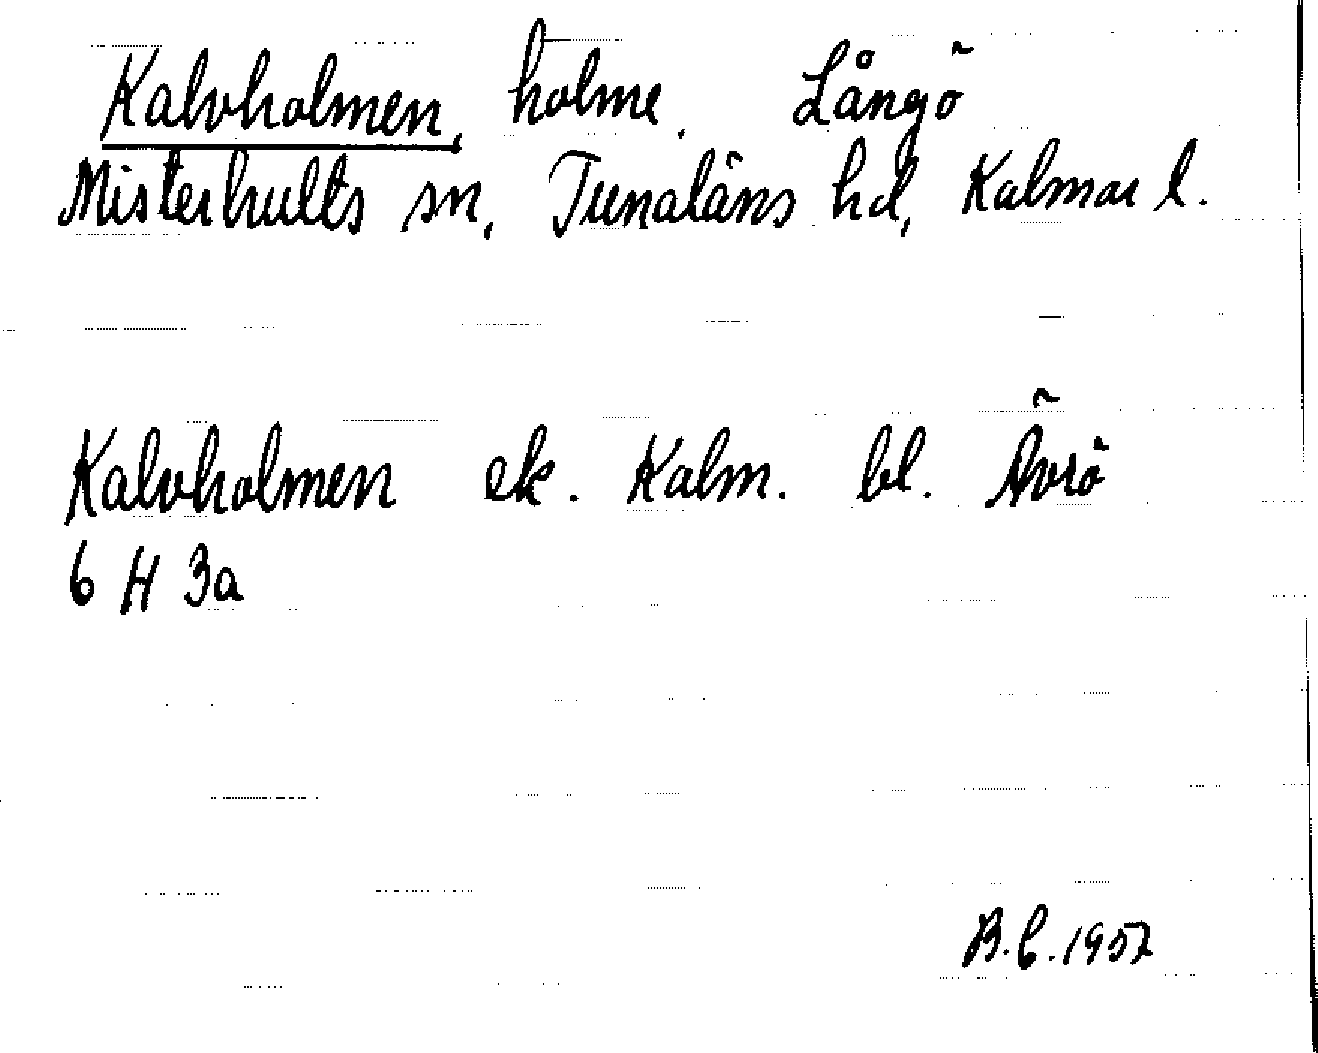 Kalvholmen, holme. Långö
Misterhults sn, Tunaläns hd, Kalmar l.
Kalvholmen ek. Kalm. bl. Ävrö
6 H 3a
B.C. 1957